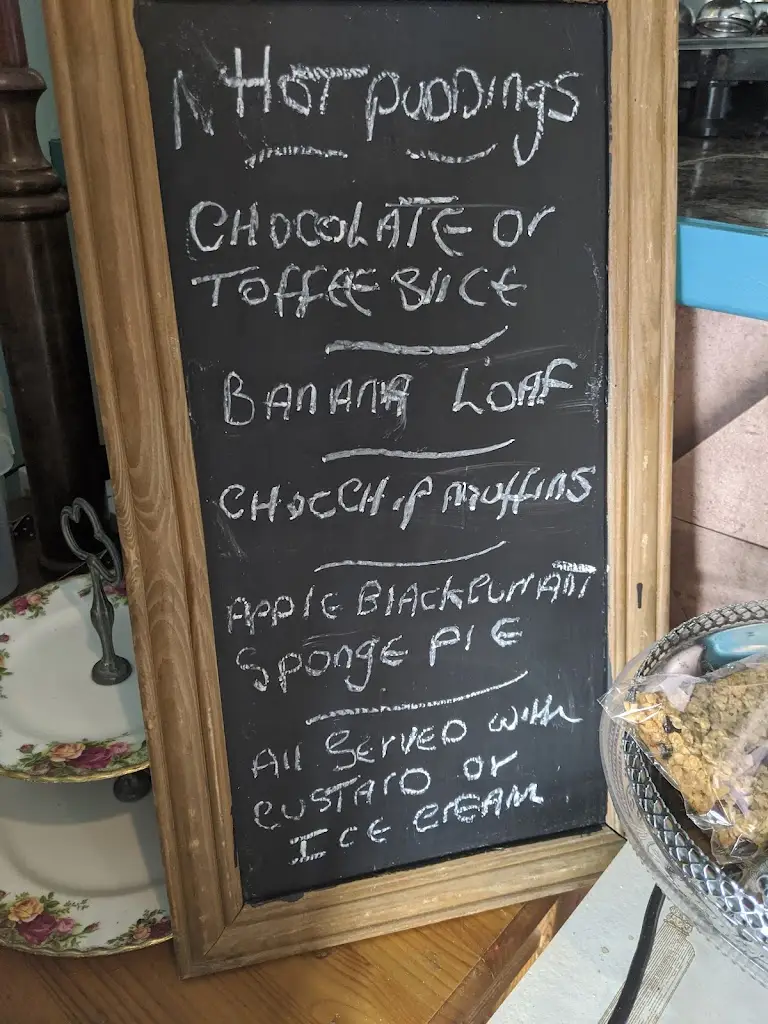 HOT PUDDINGS
CHOCOLATE or
TOFFEE BIICE
BANANA LOAF
CHOCCHIP Muffins
APPLE BlACKCURRANT
Sponge PIE
All SERVED with
CUSTARD or
ICE CREAM